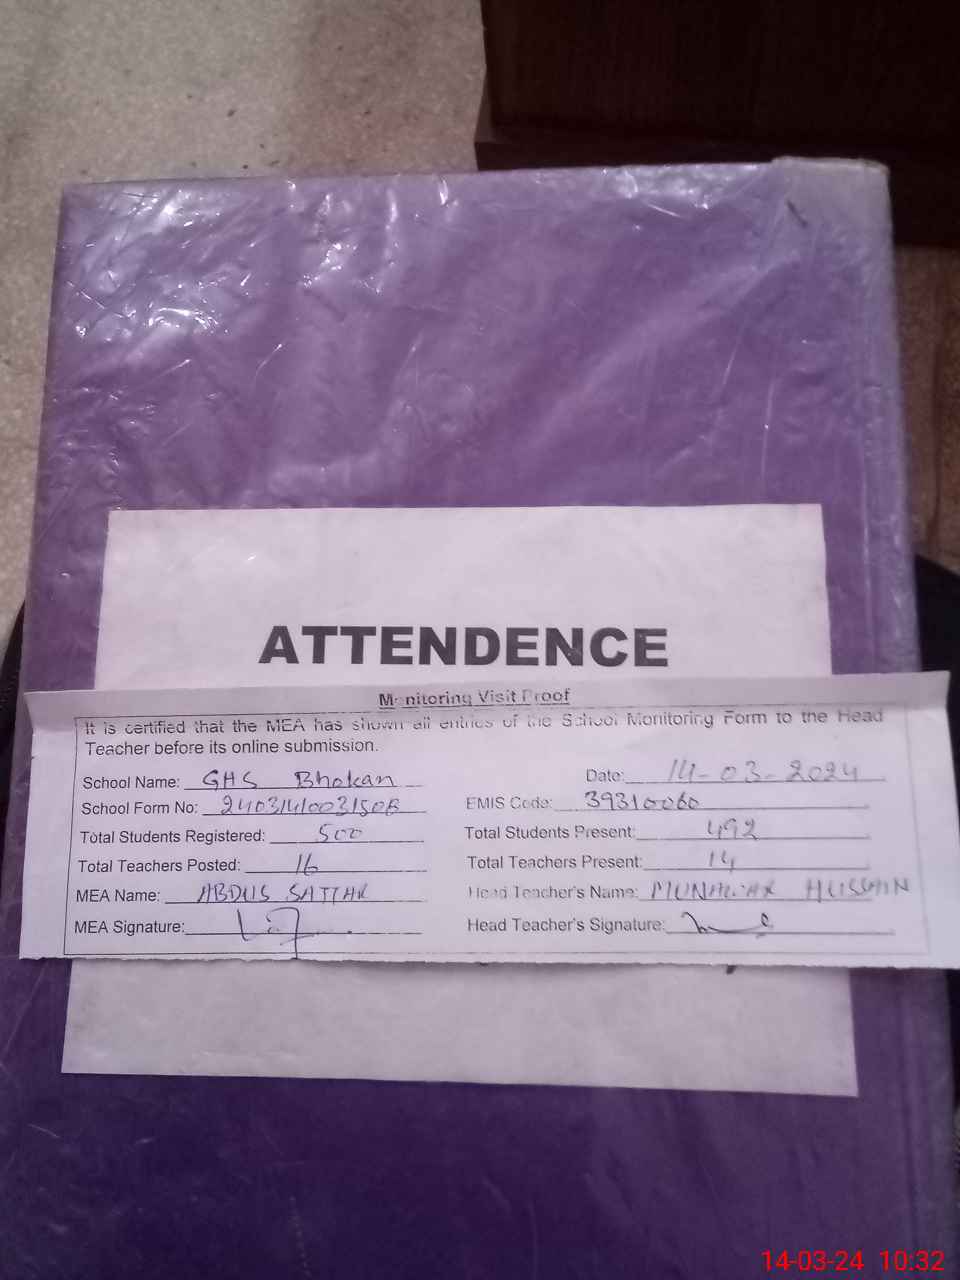 ATTENDENCE
Monitoring Visit Proof
It is certified that the MEA has shown all entries of the School Monitoring Form to the Head
Teacher before its online submission.
School Name: GHS Bhokan Date: 14-03-2024
School Form No: EMIS Code: 39310060
Total Students Registered: 500 Total Students Present: 492
Total Teachers Posted: 16 Total Teachers Present: 14
MEA Name: ABDUS SATTAR Head Teacher's Name: MUNAWAR HUSSAIN
MEA Signature: Head Teacher's Signature:
14-03-24 10:32